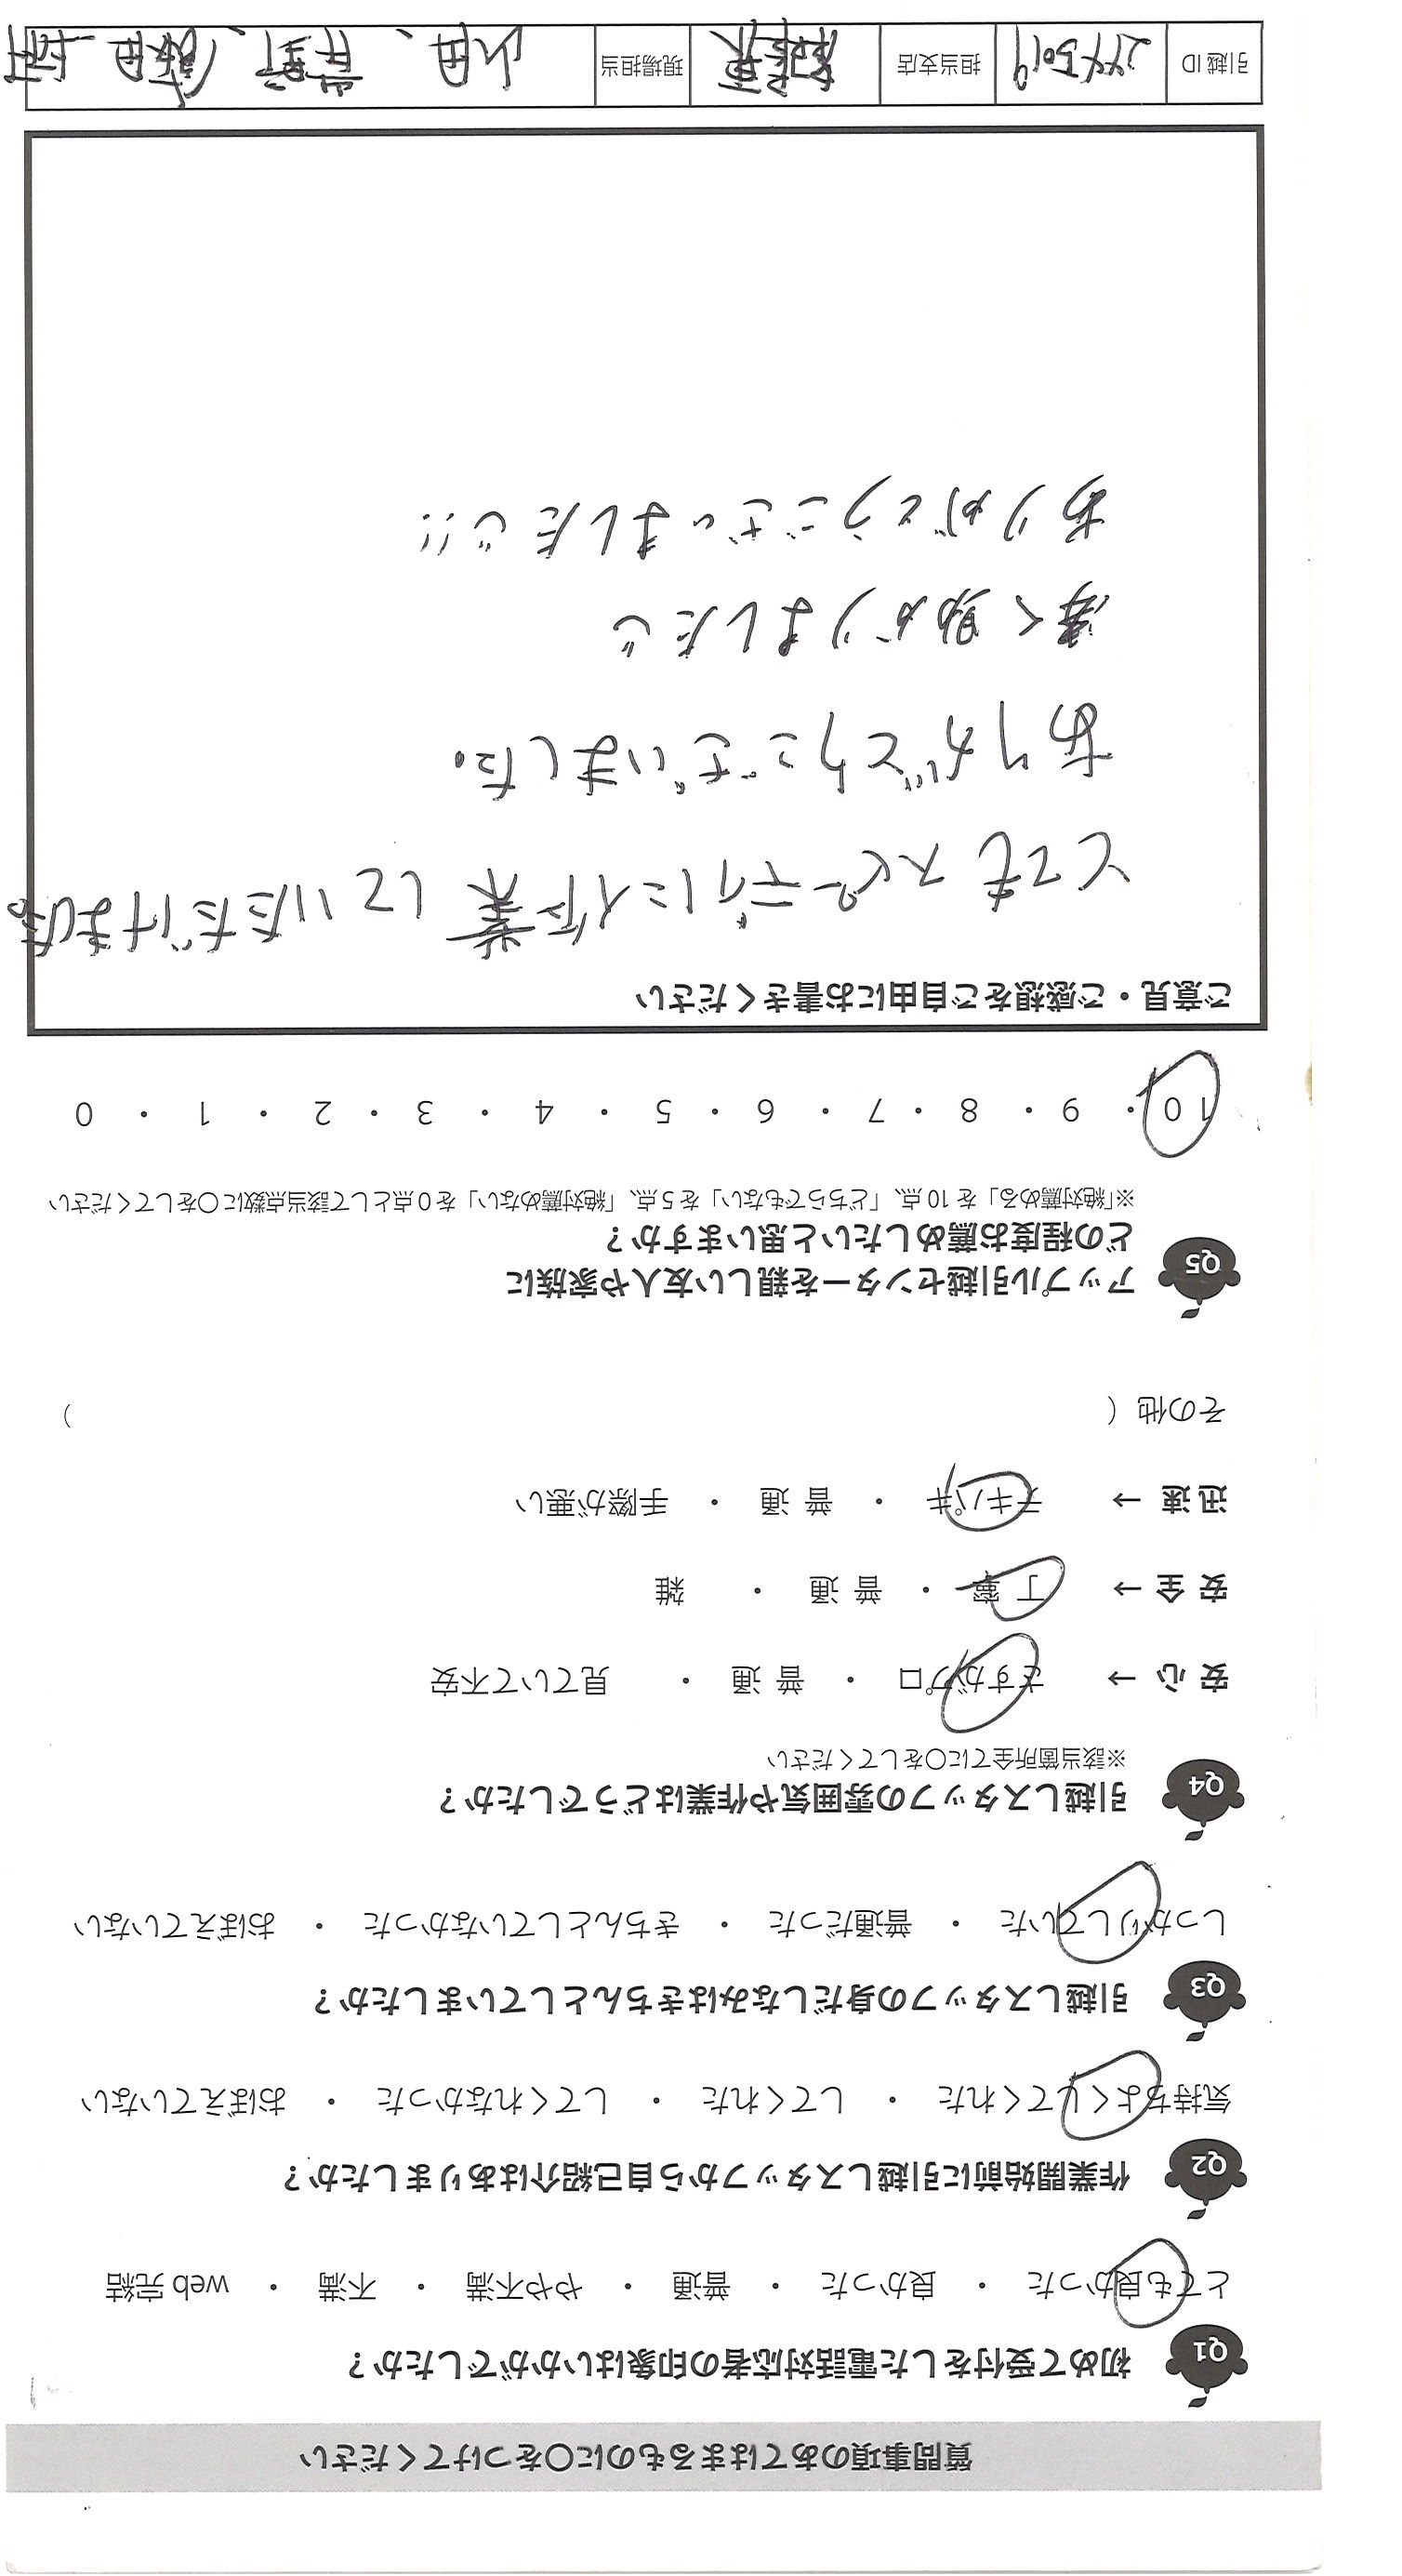 質問事項のあてはまるものに〇をつけてください
Q1 初めて受付をした電話対応者の印象はいかがでしたか？
とても良かった ・ 良かった ・ 普通 ・ やや不満 ・ 不満 ・ web 完結
Q2 作業開始前に引越しスタッフから自己紹介はありましたか？
気持ちよくしてくれた ・ してくれた ・ してくれなかった ・ おぼえていない
Q3 引越しスタッフの身だしなみはきちんとしていましたか？
しっかりしていた ・ 普通だった ・ きちんとしていなかった ・ おぼえていない
Q4 引越しスタッフの雰囲気や作業はどうでしたか？
※該当箇所全てに〇をしてください
安 心 → さすがプロ ・ 普 通 ・ 見ていて不安
安 全 → 丁 寧 ・ 普 通 ・ 雑
迅 速 → テキパキ ・ 普 通 ・ 手際が悪い
その他（ ）
Q5 アップル引越センターを親しい友人や家族に
どの程度お薦めしたいと思いますか？
※「絶対薦める」を 10 点、「どちらでもない」を 5 点、「絶対薦めない」を 0 点として該当点数に〇をしてください
10 ・ 9 ・ 8 ・ 7 ・ 6 ・ 5 ・ 4 ・ 3 ・ 2 ・ 1 ・ 0
ご意見・ご感想をご自由にお書きください
とてもスピーディに作業していただけました。
ありがとうございました。
凄く助かりました
ありがとうございました!!
引越 ID 担当支店 現場担当 山田、 菅野、 飯田